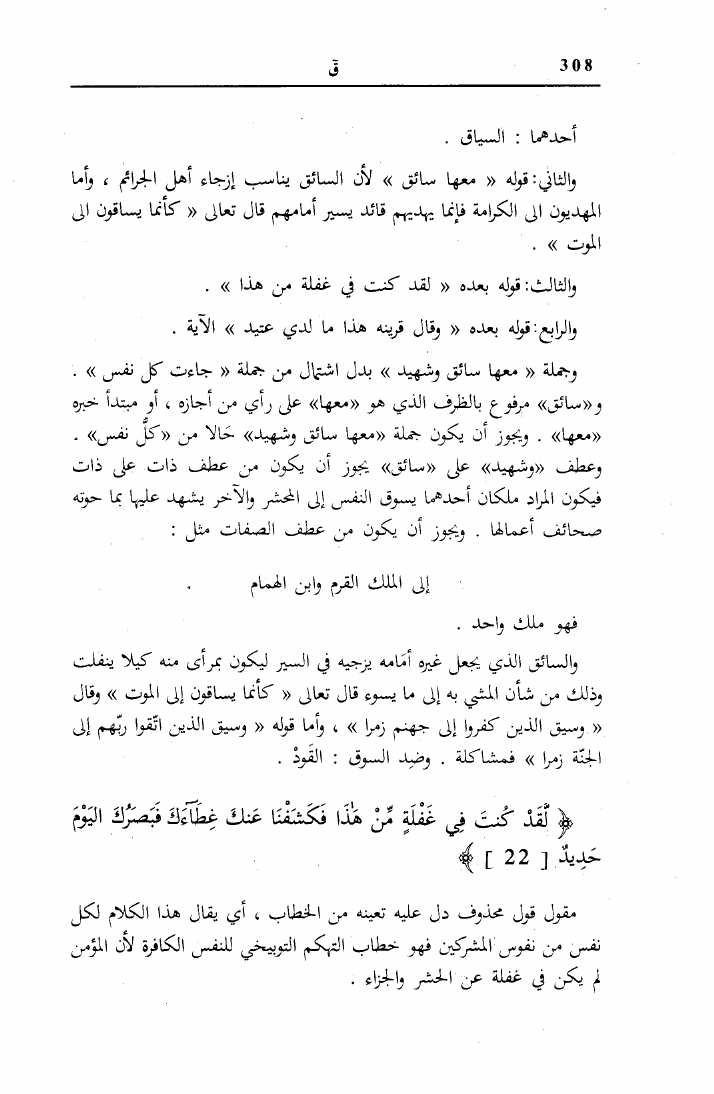 308
قٓ
أحدهما : السياق .
والثاني: قوله « معها سائق » لأن السائق يناسب إزجاء أهل الجرائم ، وأما
المهديون الى الكرامة فإنما يهديهم قائد يسير أمامهم قال تعالى « كأنما يساقون الى
الموت » .
والثالث: قوله بعده « لقد كنت في غفلة من هذا » .
والرابع: قوله بعده « وقال قرينه هذا ما لدي عتيد » الآية .
وجملة « معها سائق وشهيد » بدل اشتمال من جملة « جاءت كل نفس » .
و«سائق» مرفوع بالظرف الذي هو «معها» على رأي من أجازه ، أو مبتدأ خبره
«معها» . ويجوز أن يكون جملة «معها سائق وشهيد» حَالا من «كلُّ نفس» .
وعطف «وشهيد» على «سائق» يجوز أن يكون من عطف ذات على ذات
فيكون المراد ملكان أحدهما يسوق النفس إلى المحشر والآخر يشهد عليها بما حوته
صحائف أعمالها . ويجوز أن يكون من عطف الصفات مثل :
إلى الملك القرم وابن الهمام .
فهو ملك واحد .
والسائق الذي يجعل غيره أمَامه يزجيه في السير ليكون بمرأى منه كيلا ينفلت
وذلك من شأن المشي به إلى ما يسوء قال تعالى « كأنما يساقون إلى الموت » وقال
« وسيق الذين كفروا إلى جهنم زمرا » ، وأما قوله « وسيق الذين اتّقوا ربّهم إلى
الجنّة زمرا » فمشاكلة . وضِد السوق : القَودْ .
﴿ لَّقَدْ كُنتَ فِي غَفْلَةٍ مِّنْ هَٰذَا فَكَشَفْنَا عَنكَ غِطَآءَكَ فَبَصَرُكَ اليَوْمَ
حَدِيدٌ [ 22 ] ﴾
مقول قول محذوف دل عليه تعينه من الخطاب ، أي يقال هذا الكلام لكل
نفس من نفوس المشركين فهو خطاب التهكم التوبيخي للنفس الكافرة لأن المؤمن
لم يكن في غفلة عن الحشر والجزاء .